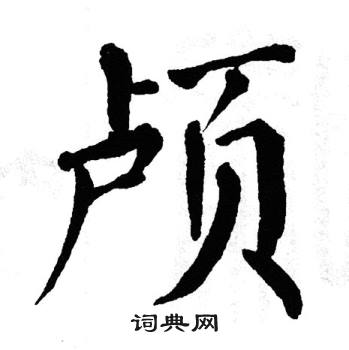 颅
词典网